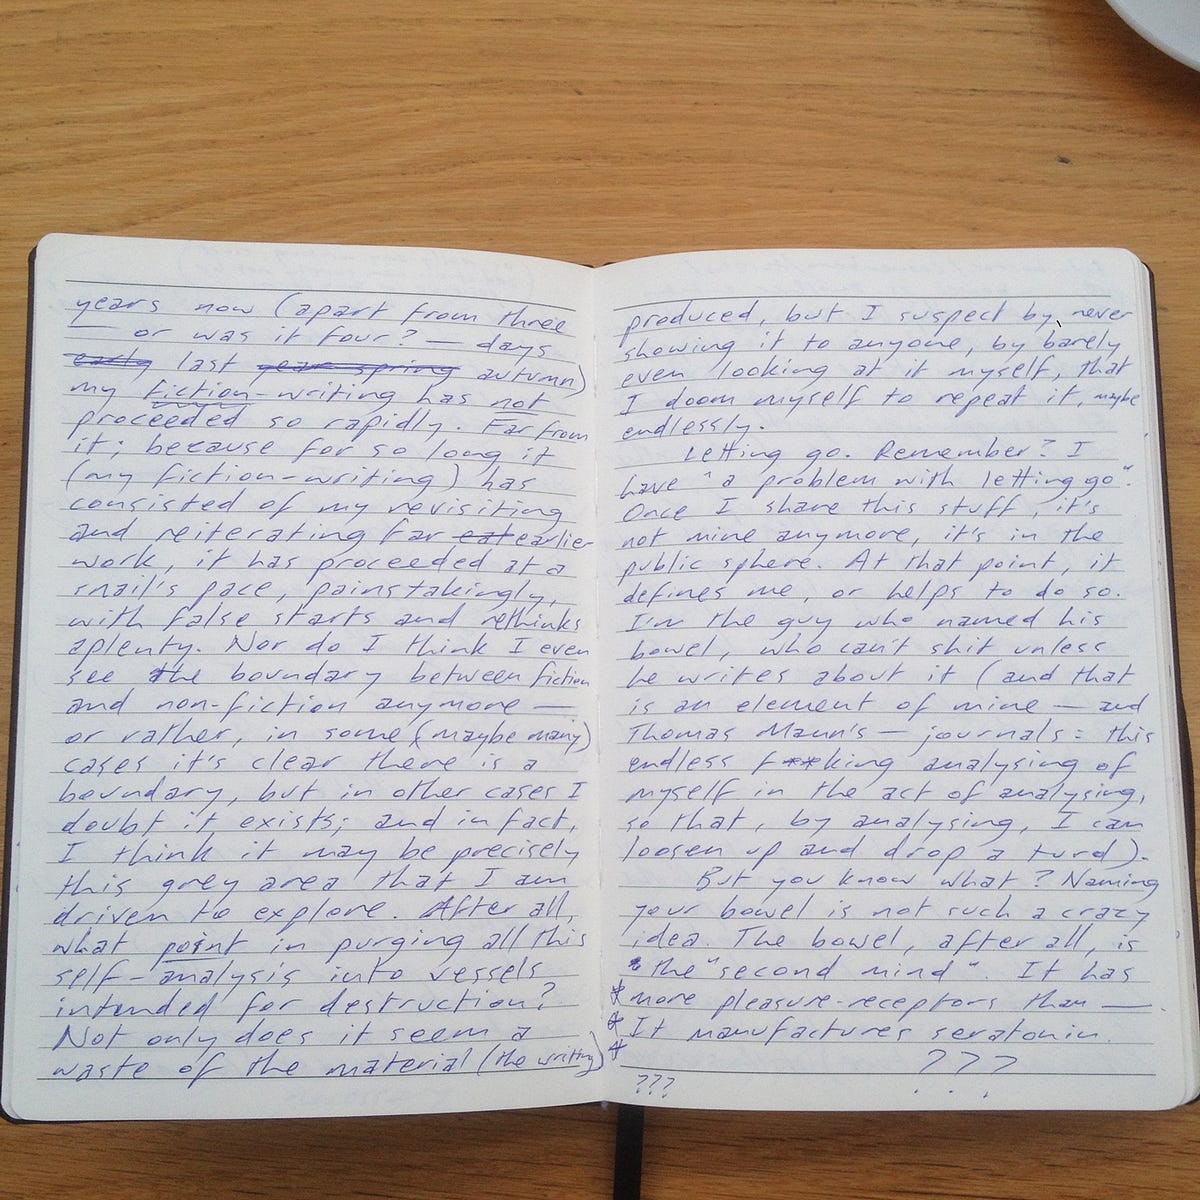 years now (apart from three
— or was it four? — days
early last year spring autumn)
my fiction-writing has not
proceeded so rapidly. Far from
it; because for so long it
(my fiction-writing) has
consisted of my revisiting
and reiterating far eat earlier
work, it has proceeded at a
snail's pace, painstakingly,
with false starts and rethinks
aplenty. Nor do I think I even
see the boundary between fiction
and non-fiction anymore —
or rather, in some (maybe many)
cases it's clear there is a
boundary, but in other cases I
doubt it exists; and in fact,
I think it may be precisely
this grey area that I am
driven to explore. After all,
what point in purging all this
self-analysis into vessels
intended for destruction?
Not only does it seem a
waste of the material (the writing)
produced, but I suspect by never
showing it to anyone, by barely
even looking at it myself, that
I doom myself to repeat it, maybe
endlessly.
Letting go. Remember? I
have "a problem with letting go".
Once I share this stuff, it's
not mine anymore, it's in the
public sphere. At that point, it
defines me, or helps to do so.
I'm the guy who named his
bowel, who can't shit unless
he writes about it (and that
is an element of mine — and
Thomas Mann's — journals: this
endless f**king analysing of
myself in the act of analysing,
so that, by analysing, I can
loosen up and drop a turd).
But you know what? Naming
your bowel is not such a crazy
idea. The bowel, after all, is
* the "second mind". It has
* more pleasure-receptors than —
* It manufactures seratonin.
* ???
???